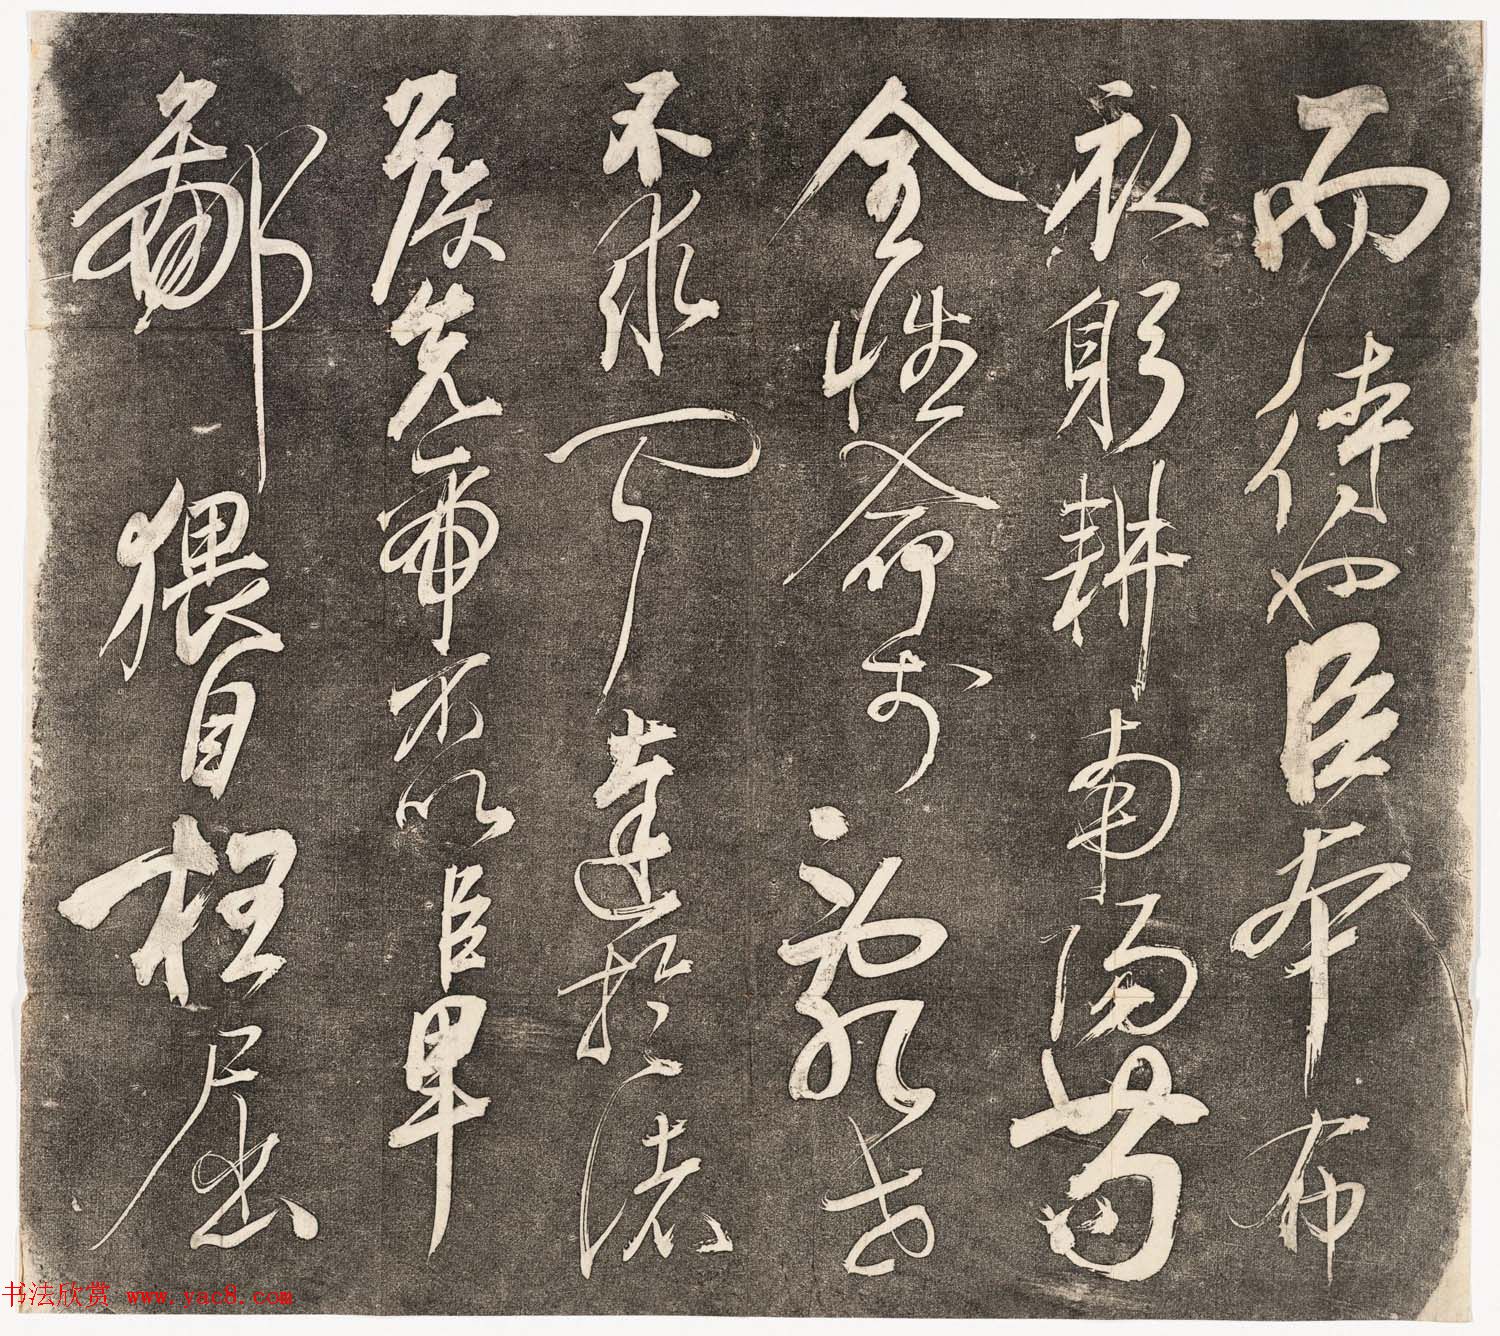 而待也臣本布
衣躬耕南陽苟
全性命於亂世
不求聞達於諸
侯先帝不以臣卑
鄙猥自枉屈
书法欣赏 www.yac8.com